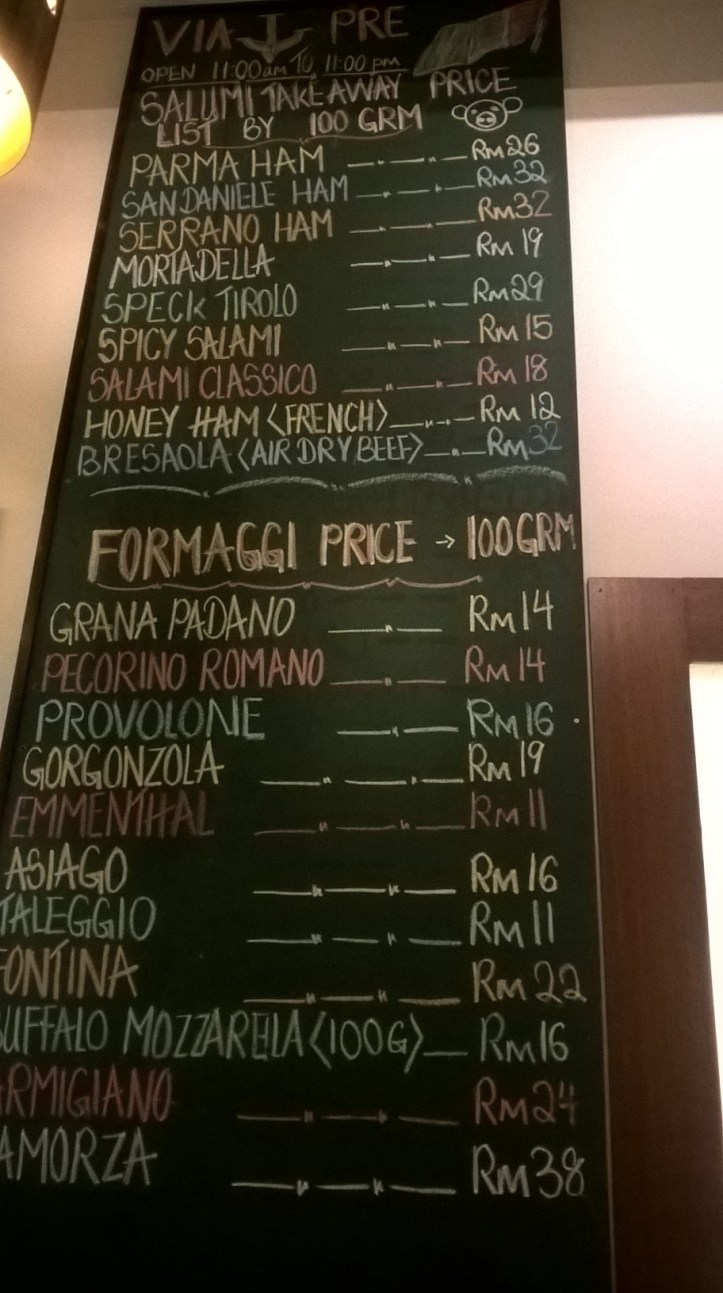 VIA PRE
OPEN 11:00am TO 11:00 pm
SALUMI TAKEAWAY PRICE
LIST BY 100 GRM
PARMA HAM RM 26
SAN DANIELE HAM RM 32
SERRANO HAM RM 32
MORTADELLA RM 19
SPECK TIROLO RM 29
SPICY SALAMI RM 15
SALAMI CLASSICO RM 18
HONEY HAM <FRENCH> RM 12
BRESAOLA <AIR DRY BEEF> RM 32
FORMAGGI PRICE → 100GRM
GRANA PADANO RM 14
PECORINO ROMANO RM 14
PROVOLONE RM 16
GORGONZOLA RM 19
EMMENTHAL RM 11
ASIAGO RM 16
TALEGGIO RM 11
FONTINA RM 22
BUFFALO MOZZARELA <100G> RM 16
ARMIGIANO RM 24
AMORZA RM 38